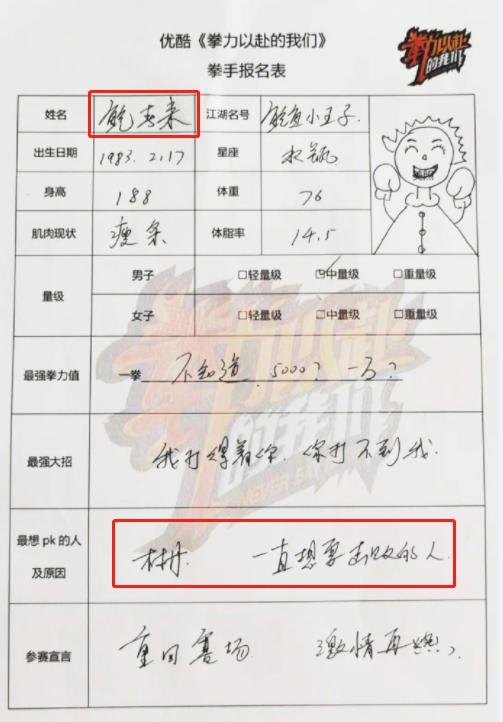 优酷《拳力以赴的我们》
拳手报名表
拳力以赴
的我们
姓名 鲍春来 江湖名号 鲍鱼小王子
出生日期 1983.2.17 星座 水瓶
身高 188 体重 76
肌肉现状 瘦条 体脂率 14.5
量级 男子 □轻量级 ☑中量级 □重量级
女子 □轻量级 □中量级 □重量级
最强拳力值 一拳 不知道.5000?一万?
最强大招 我打得着你.你打不到我.
最想pk的人
及原因 林丹 一直想要击败的人.
参赛宣言 重回赛场 激情再燃